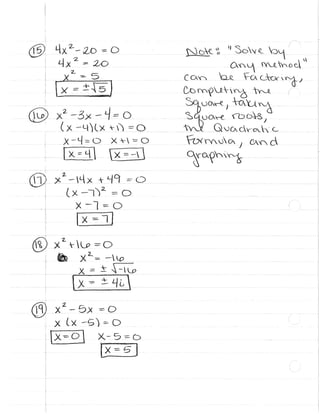 15 4x² - 20 = 0
4x² = 20
x² = 5
x = ±√5
16 x² - 3x - 4 = 0
(x - 4)(x + 1) = 0
x - 4 = 0 x + 1 = 0
x = 4 x = -1
17 x² - 14x + 49 = 0
(x - 7)² = 0
x - 7 = 0
x = 7
18 x² + 16 = 0
x² = -16
x = ± √-16
x = ± 4i
19 x² - 5x = 0
x (x - 5) = 0
x = 0 x - 5 = 0
x = 5
Note: "Solve by
any method"
can be Factoring,
Completing the
Square, taking
Square roots,
the Quadratic
Formula, and
graphing